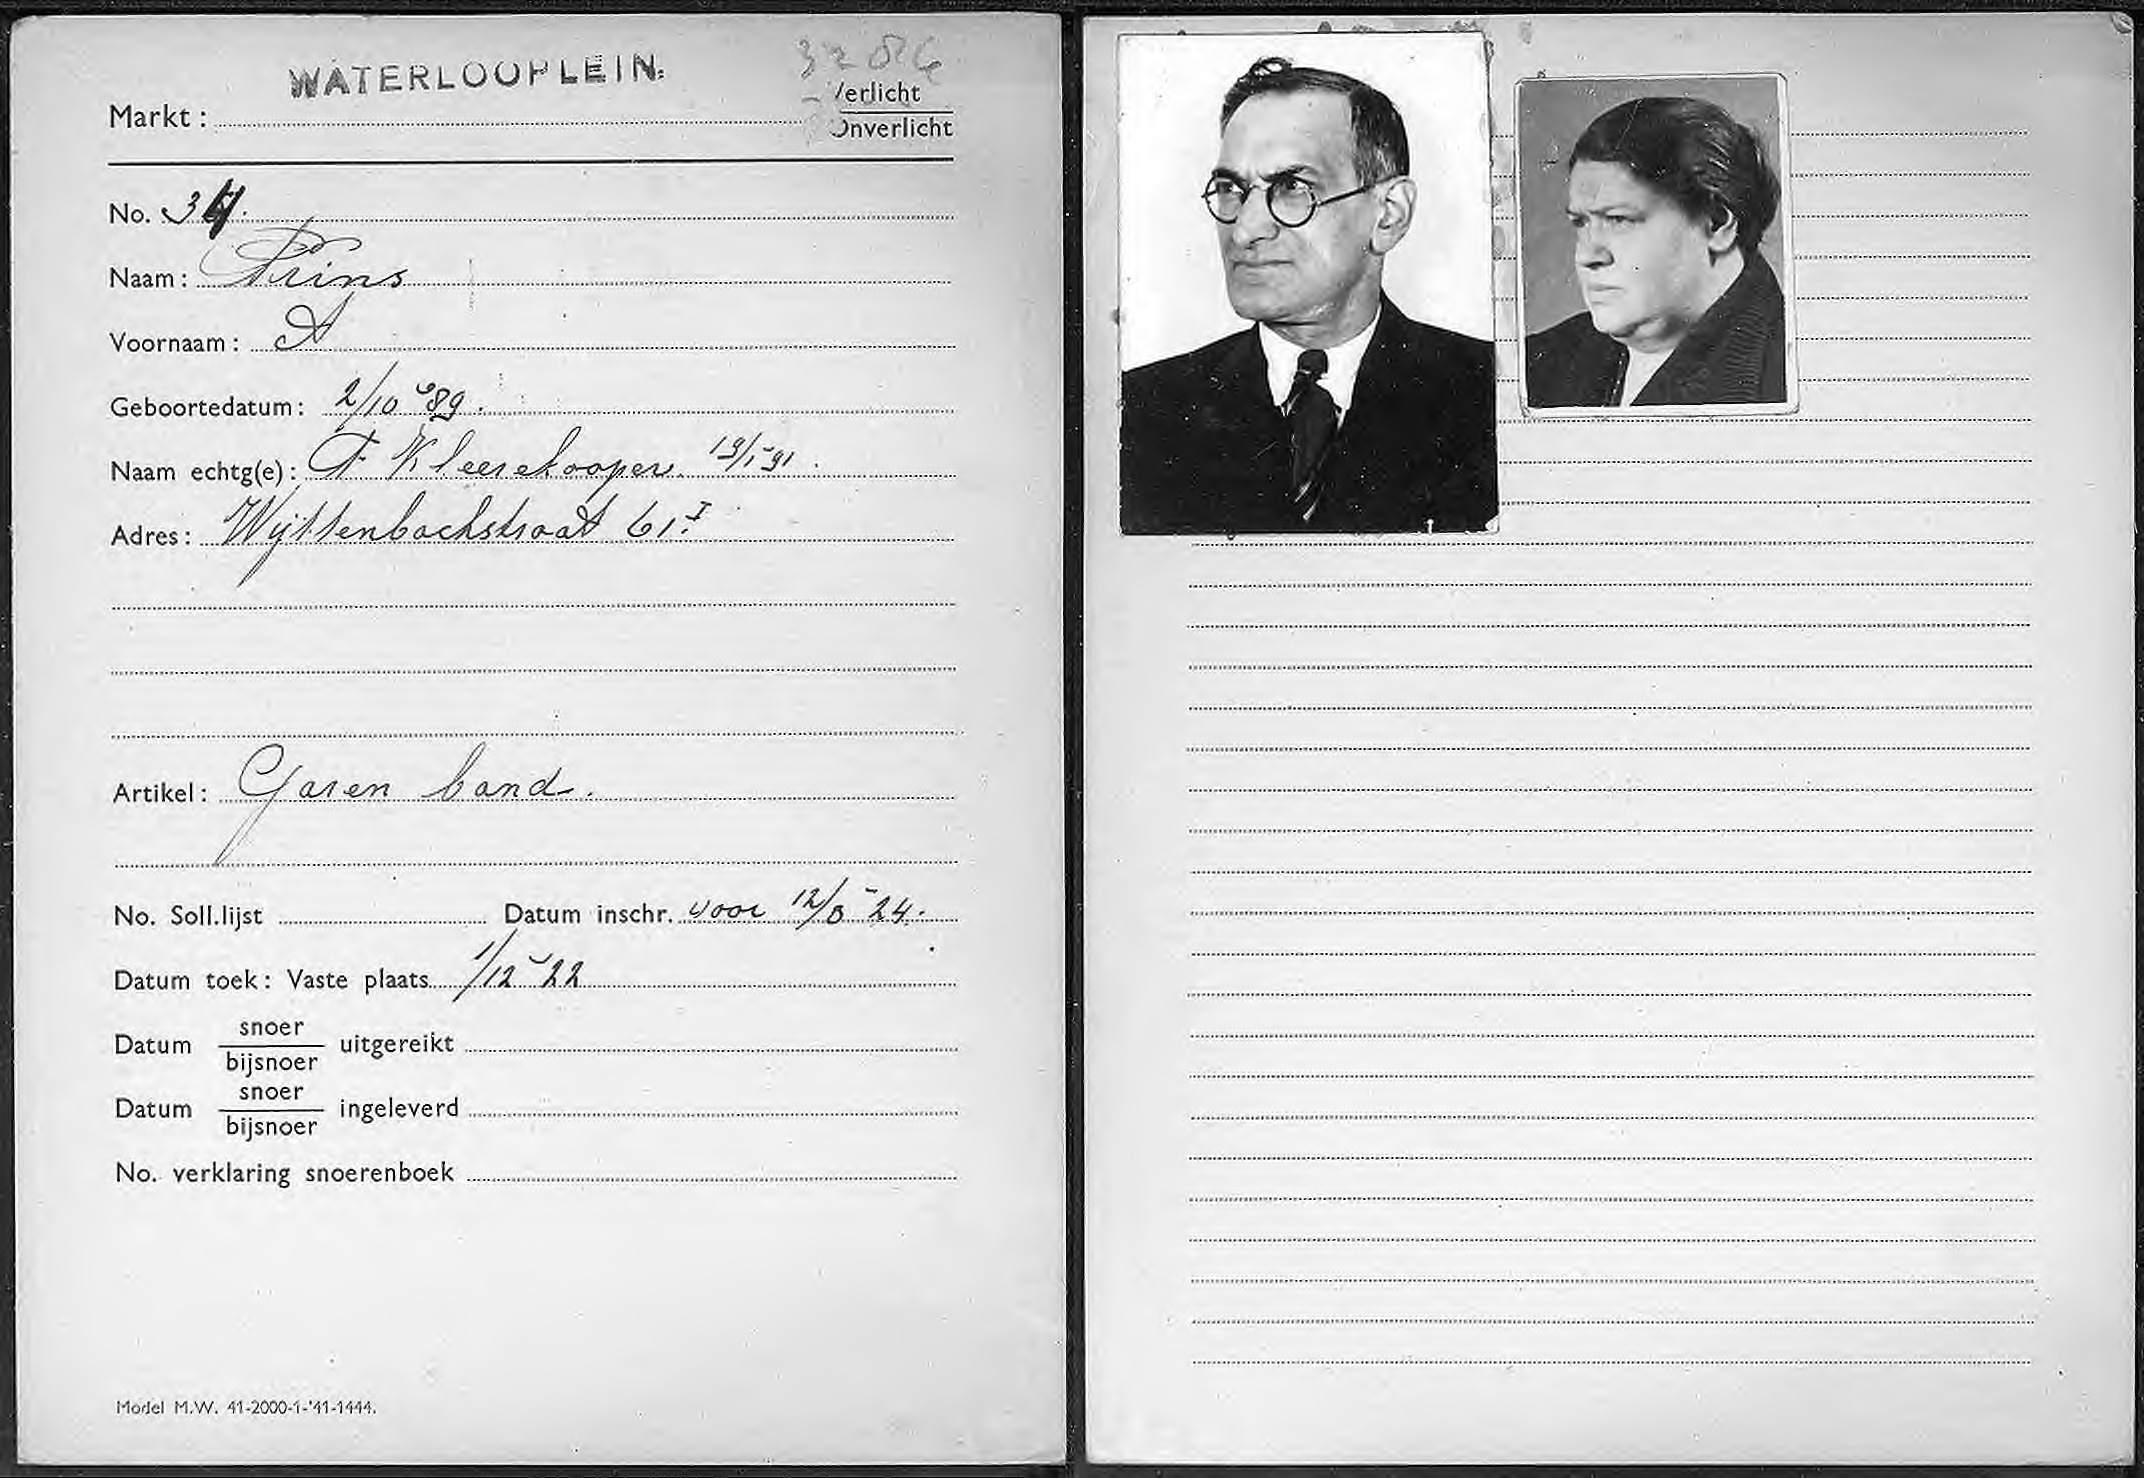 WATERLOOPLEIN.
Markt :
Verlicht
Onverlicht
No. 34.
Naam : Prins
Voornaam : A
Geboortedatum : 2/10 '89.
Naam echtg(e) : F Kleerekooper. 19/1-91.
Adres : Wijttenbachstraat 61 I
Artikel : Garen band.
No. Soll.lijst Datum inschr. voor 12/8-24.
Datum toek : Vaste plaats 1/12-22
Datum snoer/bijsnoer uitgereikt
Datum snoer/bijsnoer ingeleverd
No. verklaring snoerenboek
Model M.W. 41-2000-1-'41-1444.